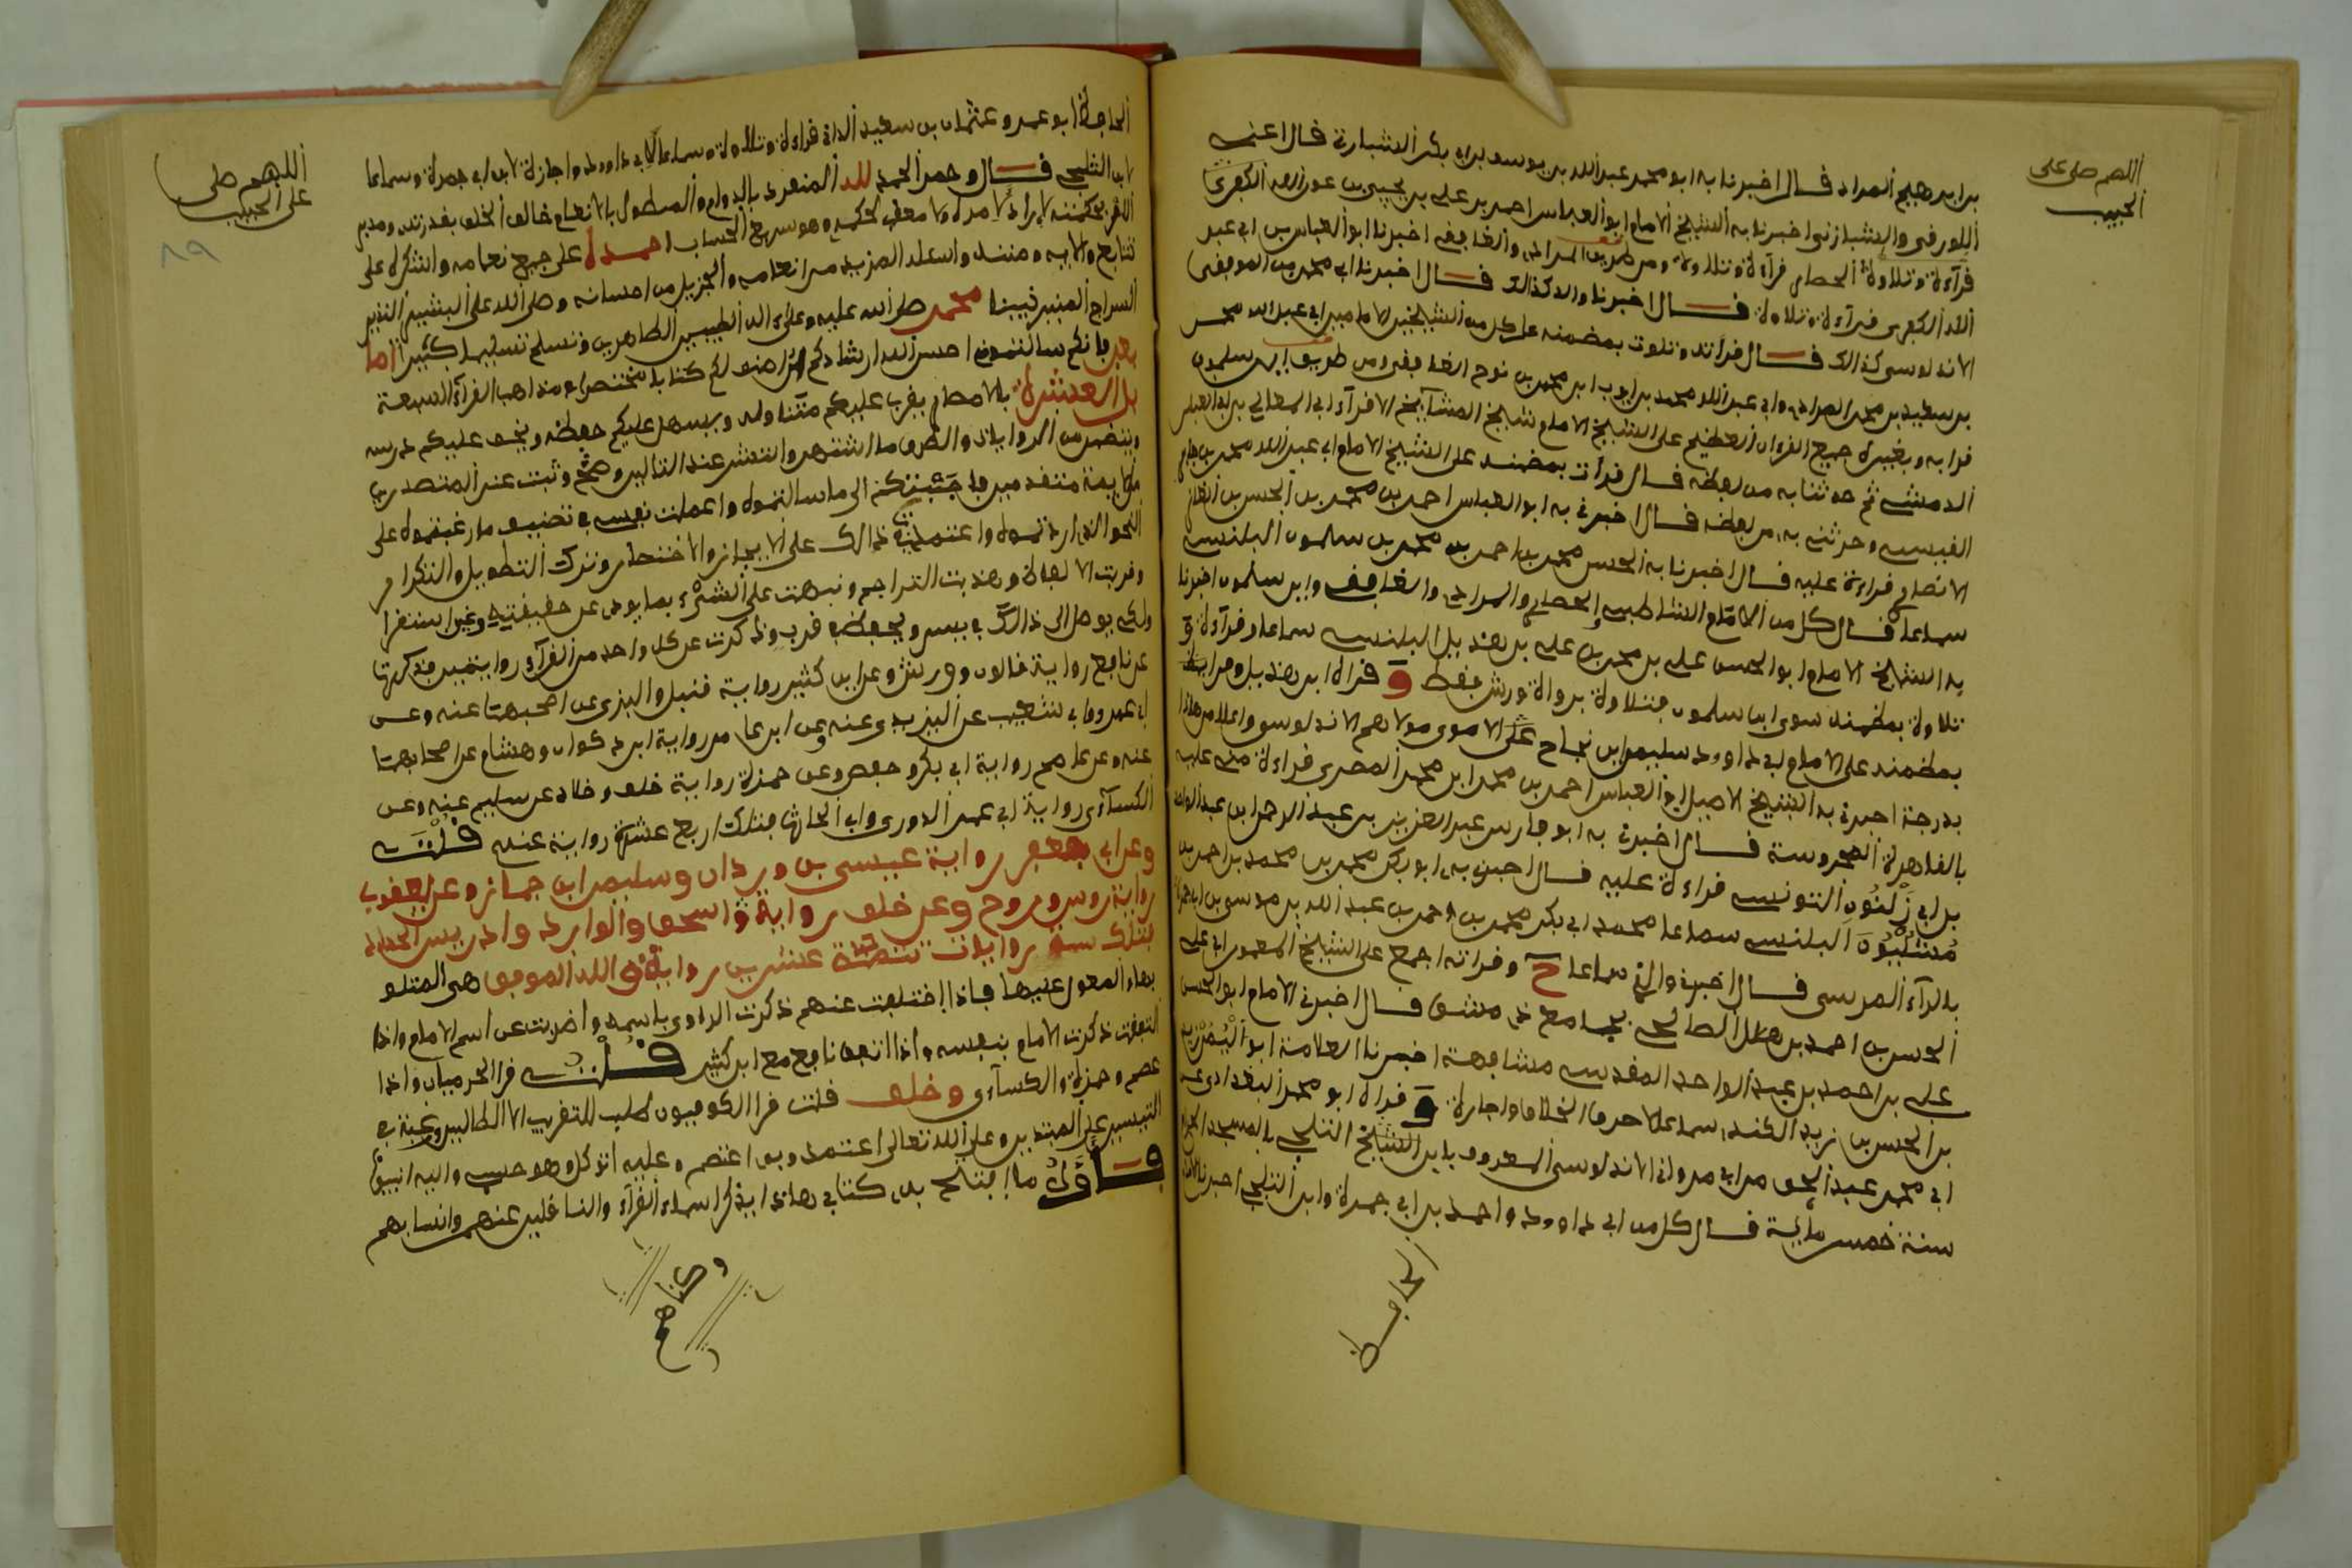 اللهم صل على
الحبيب
بن ابرهيم المراد قال اخبرنا به ابو محمد عبد الله بن يوسف بن ابي بكر الشبارة قال اعنه
والشبارتي اخبرنا به الشيخ الامام ابو العباس احمد بن علي بن يحيى بن عون الله
قرآءة وتلاوة الحصار قرآءة وتلاوة ومن طريق المرادي والغافقي اخبرنا ابو العباس بن ابي عبد
الله الكفري قرآءة وتلاوة قال اخبرنا والد كذالك قال اخبرنا ابي محمد بن الموفقي
الاندلوسي كذالك قال قراته وتلوت بمضمنه على كل من الشيخين الامامين ابي عبد الله محمد
بن سعيد بن محمد المرادي وابي عبد الله محمد بن ايوب ابن محمد بن نوح الغافقي ومن طريق ابن سلمون
قرا به وبغيره جميع القران العظيم على الشيخ الامام شيخ المشآيخ الاقرآء ابي المعالي بن
الدمشقي ثم حدثنا به من لفظه قال قرات بمضمنه على الشيخ الامام ابي عبد الله محمد بن
القيسي وحدثني به من لفظه قال اخبرني به ابو العباس احمد بن محمد بن الحسن بن
الانصاري قراءة عليه قال اخبرنا به الحسن محمد بن احمد بن محمد بن سلمون البلنسي
سماعا قال كل من الامام الشاطبي والحصار والمرادي والغافقي وابن سلمون اخبرنا
به الشيخ الامام ابو الحسن علي بن محمد بن علي بن هذيل البلنسي سماعا وقرآءة و
تلاوة بمضمنه سوى ابن سلمون فتلاوة برواية ورش فقط و قراه ابن هذيل وقرا
بمضمنه على الامام ابي داوود سليمن ابن نجاح على الاموي مولاهم الاندلوسي واعلا من هاذا
بدرجة اخبرني به الشيخ الاصيل ابو العباس احمد بن محمد ابن محمد المصري قراءة مني عليه
بالقاهرة المحروسة قال اخبرني به ابو فارس عبد العزيز بن عبد الرحمن ابن عبد الواحد
بن ابي زلنون التونسي قراءة عليه قال اخبرني به ابو بكر محمد بن محمد بن احمد بن
مشليون البلنسي سماعا محمد ابي بكر محمد بن احمد بن عبد الله بن موسى بن ابي جمرة
بالرآء المرسي قال اخبرني والدي سماعا ح وقراته اجمع على الشيخ المعمر ابي علي
الحسن بن احمد بن هلال الصالحي بجامع دمشق قال اخبرني الامام ابو الحسن
علي بن احمد بن عبد الواحد المقدسي مشافهة اخبرنا العلامة ابو اليمن زيد
بن الحسن بن زيد الكندي سماعا لاحرف الخلاف واجازة و قراه ابو محمد البغدادي على
ابي محمد عبد الحق من ابي مروان الاندلوسي المعروف بابن الشيخ الثلجي بالمسجد الحرام
سنة خمس ماية قال كل من ابي داوود واحمد بن ابي جمرة وابن الثلجي اخبرنا
الحافظ
اللهم صلى
على الحبيب
٨٩
الحافظ ابو عمرو عثمان بن سعيد الداني قراءة وتلاوة وسماعا لابي داوود واجازة لابن ابي جمرة وسماعا
لابن الثلجي قال وحمد الحمد لله المنفرد بالدوام والمتطول بالانعام خالق الخلق بقدرته ومدبر
الامر بحكمته لا راد لامره ولا معقب لحكمه وهو سريع الحساب احمده على جميع نعامه واشكره على
تتابع والايه ومننه واسئله المزيد من انعامه والجزيل من احسانه وصلى الله على البشير النذير
السراج المنير نبينا محمد صلى الله عليه وعلى اله الطيبين الطاهرين وتسلم تسليما كثيرا اما
بعد فانكم سالتموني احسن الله ارشادكم ان اصنف لكم كتابا مختصرا في مذاهب القرآء السبعة
بل العشرة بالامصار يقرب عليكم متناوله ويسهل عليكم حفظه ويخف عليكم درسه
ويتضمن من الروايات والطرق ما اشتهر وانتشر عند التالين وصح وثبت عند المتصدرين
من ايمة متقدمين فاجبتكم الى ما سالتموه واعملت نفسي في تصنيف ما رغبتموه على
النحو الذي اردتموه واعتمدت في ذالك على الايجاز والاختصار وترك التطويل والتكرار
وقربت الالفاظ وهذبت التراجم ونبهت على الشيء بما يودي عن حقيقته من غير استغرا
ولكي يوصل الى ذالك في يسر ويحفظ في قرب وذكرت عن كل واحد من القرآء روايتين فذكرتها
عن نافع رواية قالون وورش وعن ابن كثير رواية قنبل والبزي عن اصحابهما عنه وعن
ابي عمرو رواية ابي شعيب عن اليزيدي عنه وعن ابن عامر رواية ابن ذكوان وهشام عن اصحابهما
عنه وعن عاصم رواية ابي بكر وحفص وعن حمزة رواية خلف وخلاد عن سليم عنه وعن
الكسآءي رواية ابي عمر الدوري وابي الحارث فتلك اربع عشرة رواية عنه قلت
وعن ابي جعفر رواية عيسى بن وردان وسليمن ابن جماز وعن يعقوب
رواية رويس وروح وعن خلف رواية اسحق والوارد وادريس الحداد
فتلك ست روايات تتمة عشرين رواية والله الموفق هي المتلو
بها والمعول عليها فاذا اختلفت عنهم ذكرت الراوي باسمه واضربت عن اسم الامام واذا
اتفقت ذكرت الامام بنفسه واذا اتفق نافع مع ابن كثير قلت قرا الحرميان واذا
عصم وحمزة والكسآءي وخلف قلت قرا الكوفيون طلب للتقريب الا الطالبين ورغبة في
التيسير على المبتدين وعلى الله تعالى اعتمد وبه اعتصم وعليه اتوكل وهو حسبي واليه انيب
فاول ما افتتح به كتابي هاذا بذكر اسماء القرآء والناقلين عنهم وانسابهم
وكناهم